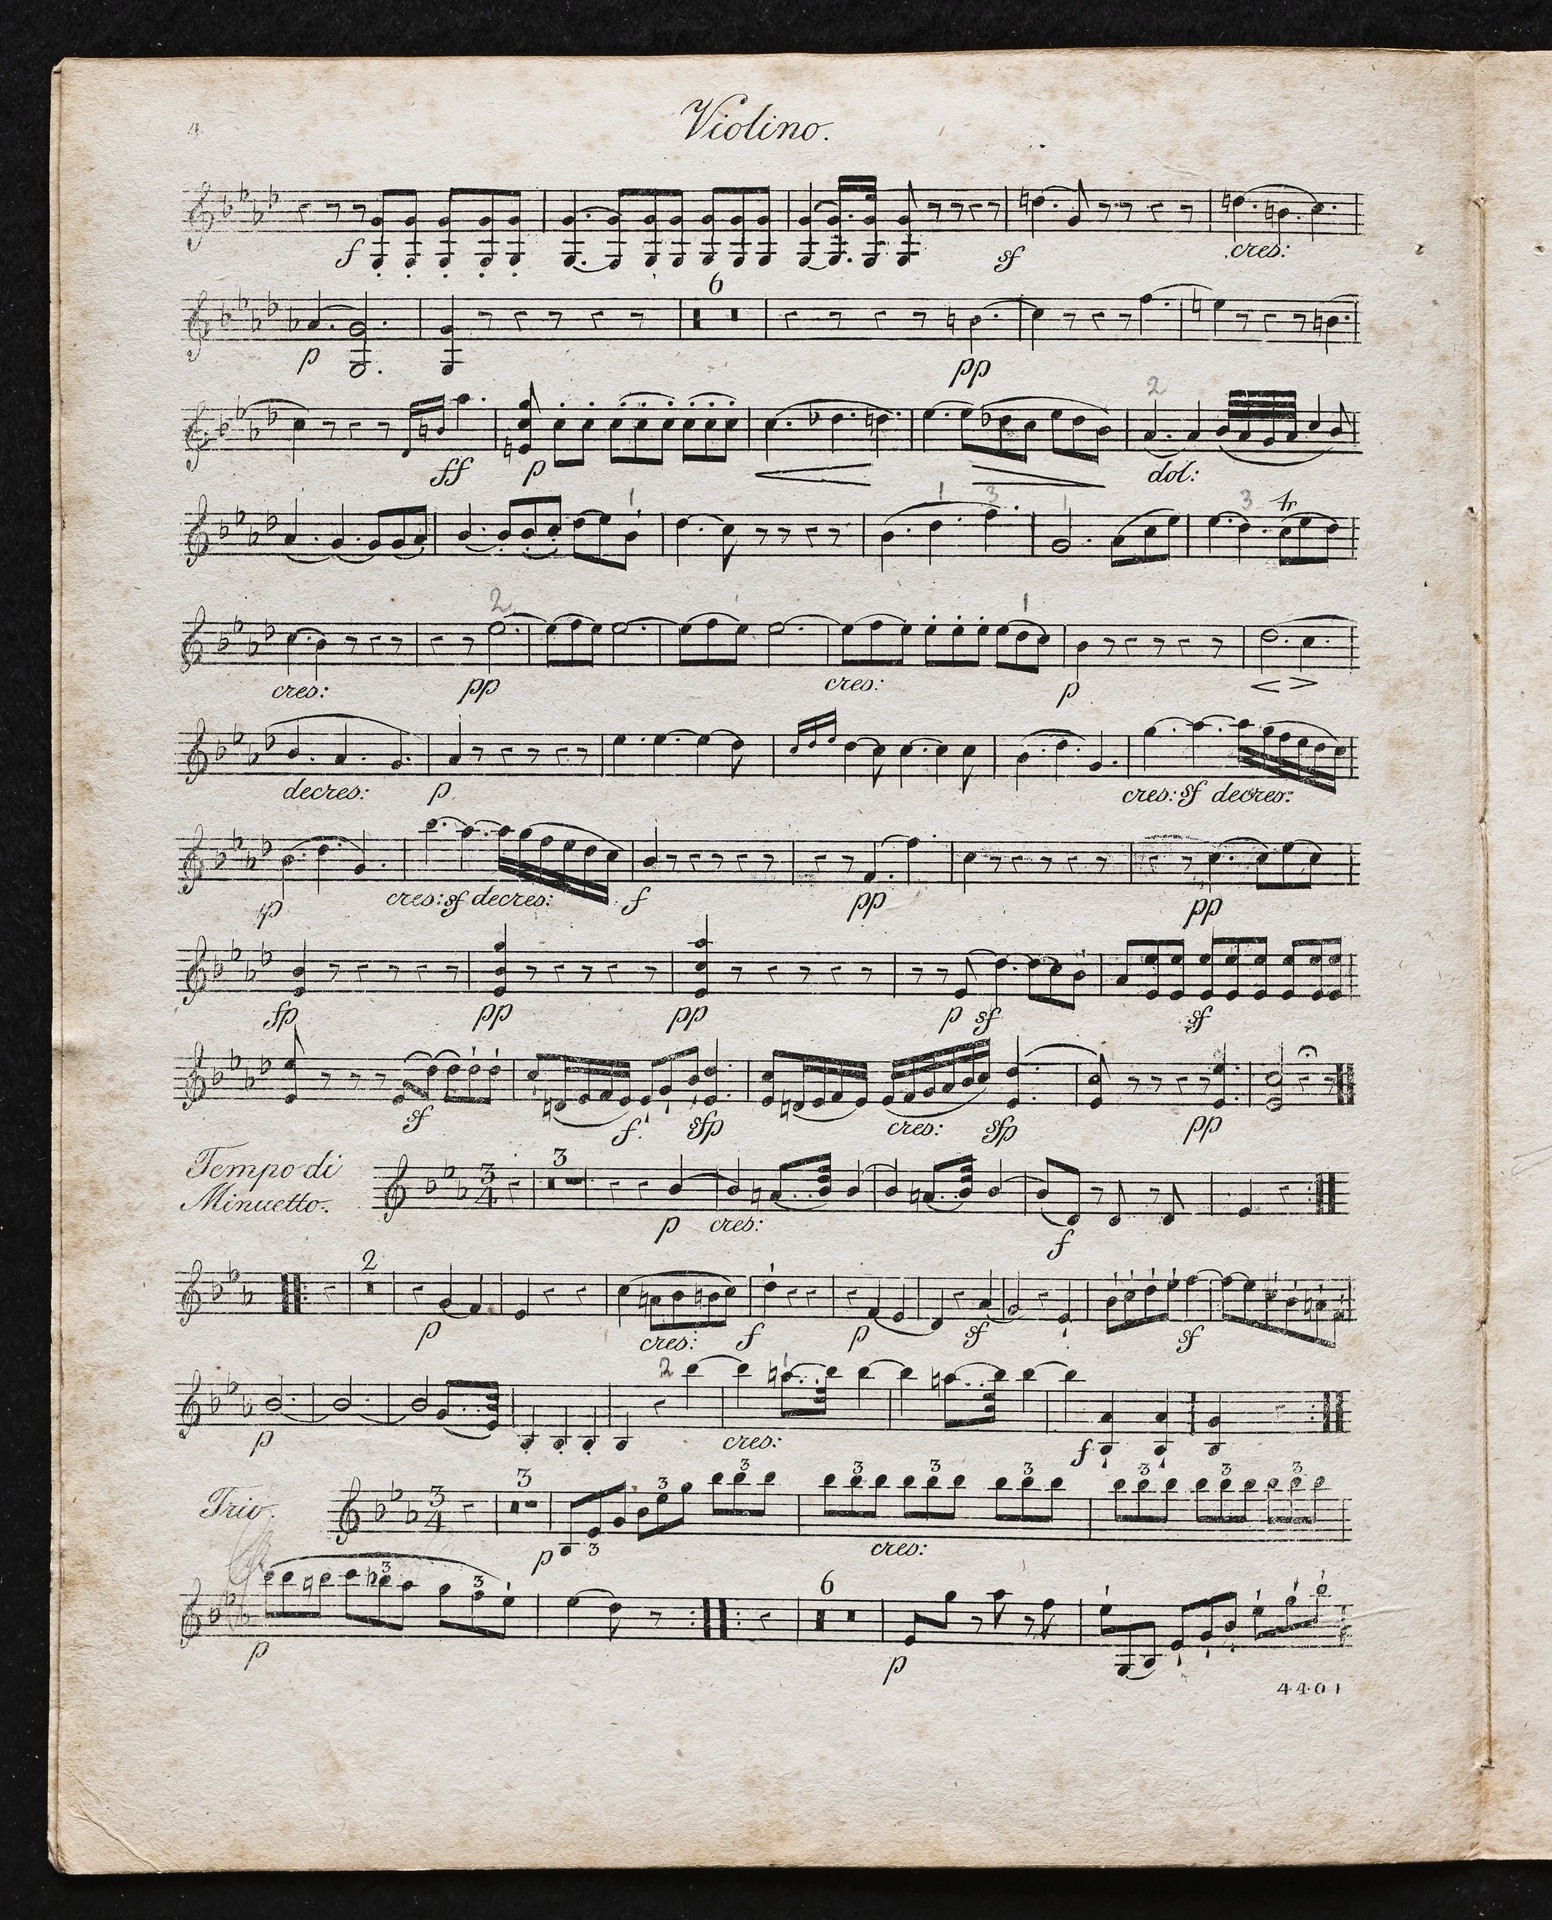 4
Violino.
f sf cres:
6
p pp
2
ff p dol:
1 1 3 1 3 tr
2 1
cres: pp cres: p
decres: p cres: sf decres:
p cres: sf decres: f pp pp
sfp pp pp p sf sf
sf f sfp cres: sfp pp
Tempo di
Minuetto.
3
4
3
p cres: f
2
p cres: f p sf sf
2 1
p cres: f
Trio.
3
4
3 3 3 3 3 3 3 3 3
p 3 cres:
3 3 6
p p
4401